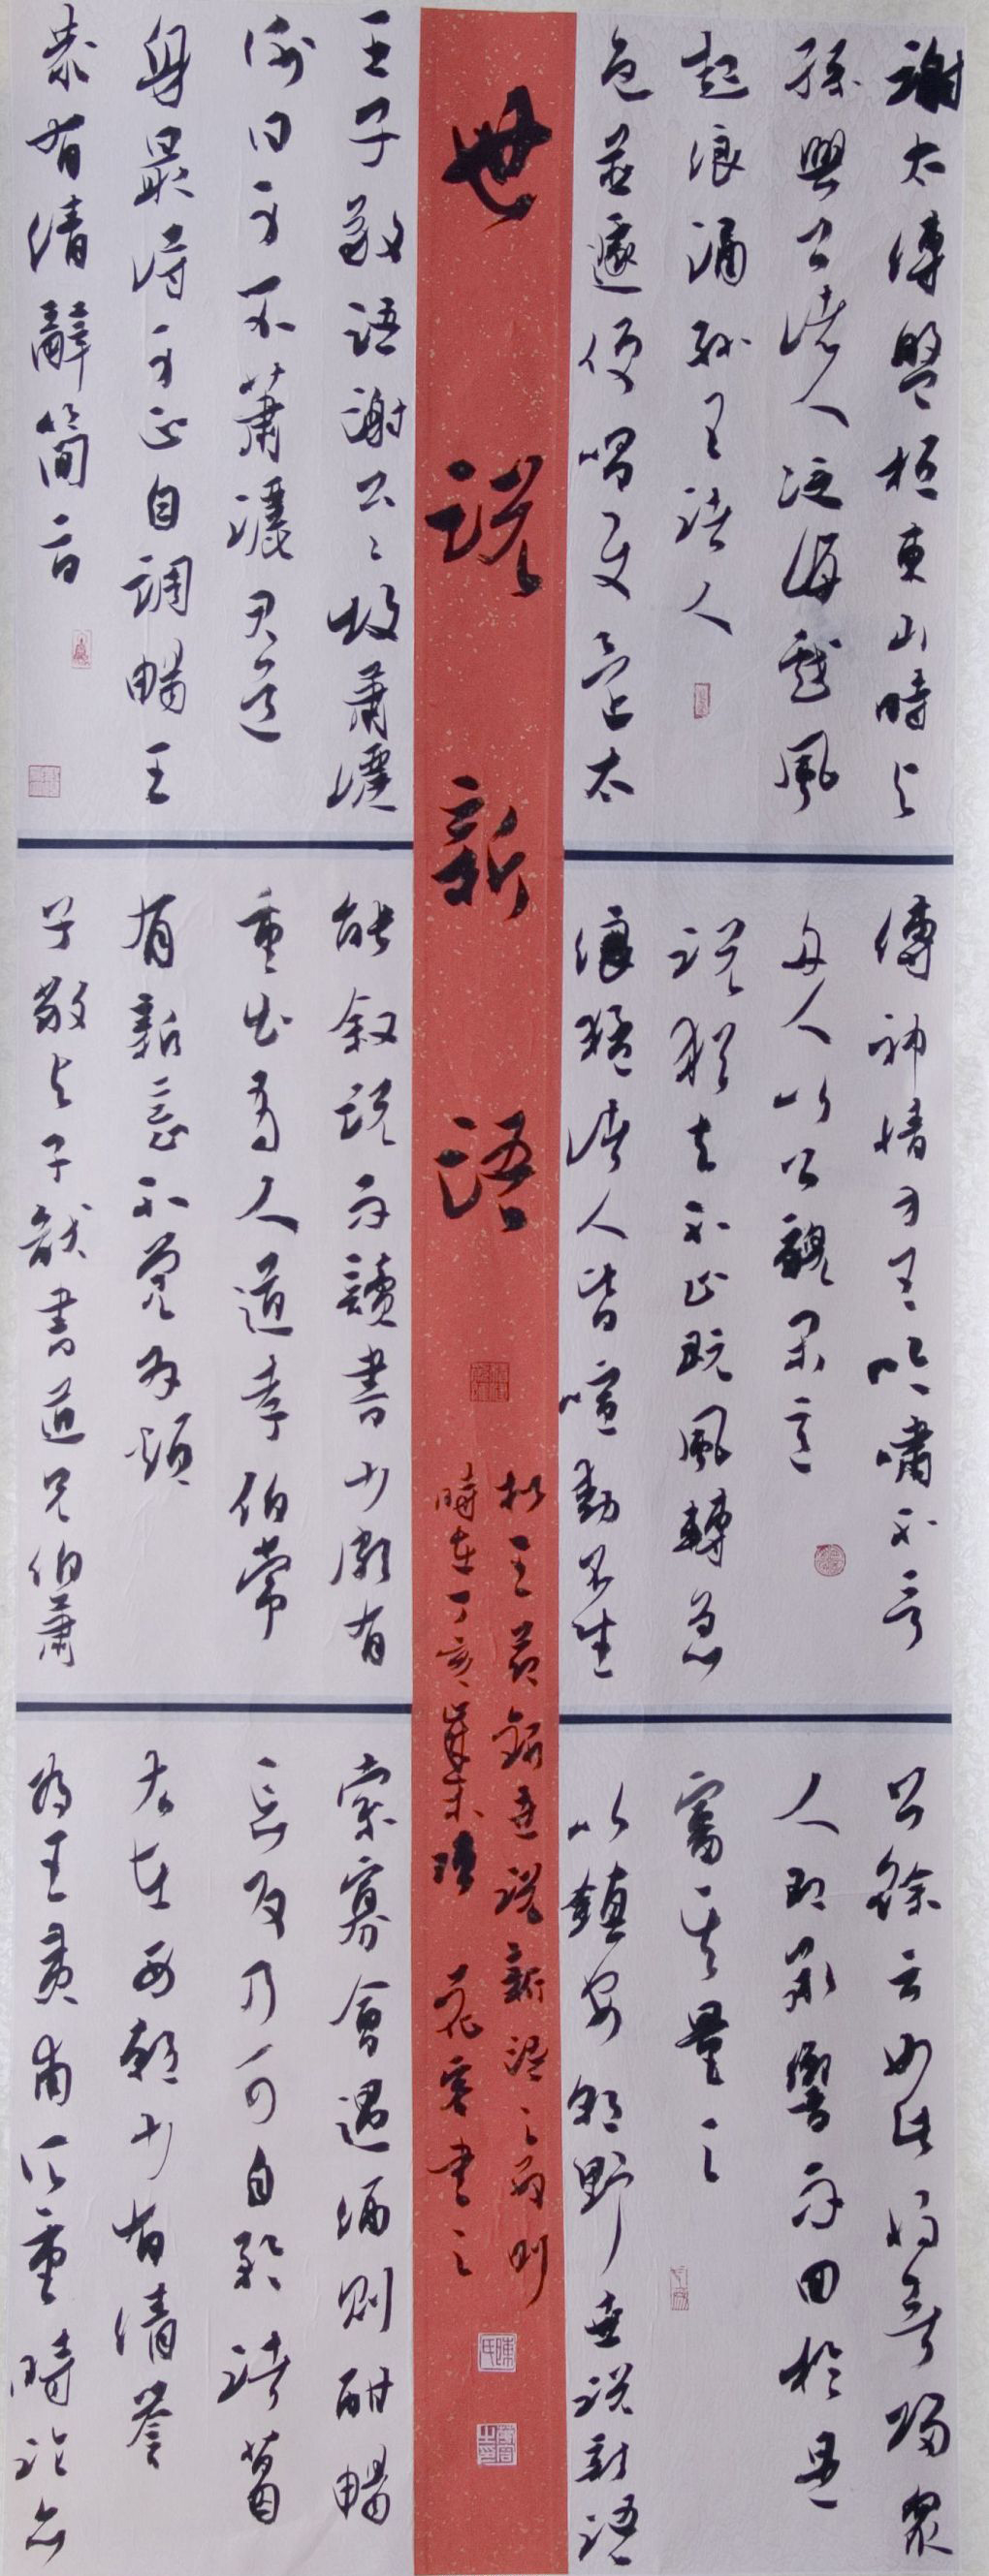 謝太傅盤桓東山時與
孫興公諸人泛海戲風
起浪涌孫王諸人
色並遽便唱使還太
傅神情方王吟嘯不言
舟人以公貌閑意
說猶去不止既風轉急
浪猛諸人皆喧動不坐
公徐云如此將無歸眾
人即承響而回於是
審其量足
以鎮安朝野世說新語
世說新語
王世說新語之兩則
時在丁亥歲末陳客書之
陳氏
王子敬語謝公公故蕭灑
謝曰身不蕭灑君道
身最得身正自調暢王
恭有清辭簡旨
能敘說而讀書少頗有
重出有人道孝伯常
有新意不覺為煩
子敬與子猷書道兄伯蕭
索寡會遇酒則酣暢
忘反乃可自矜諸葛
厷在西朝少有清譽
為王夷甫所重時論亦